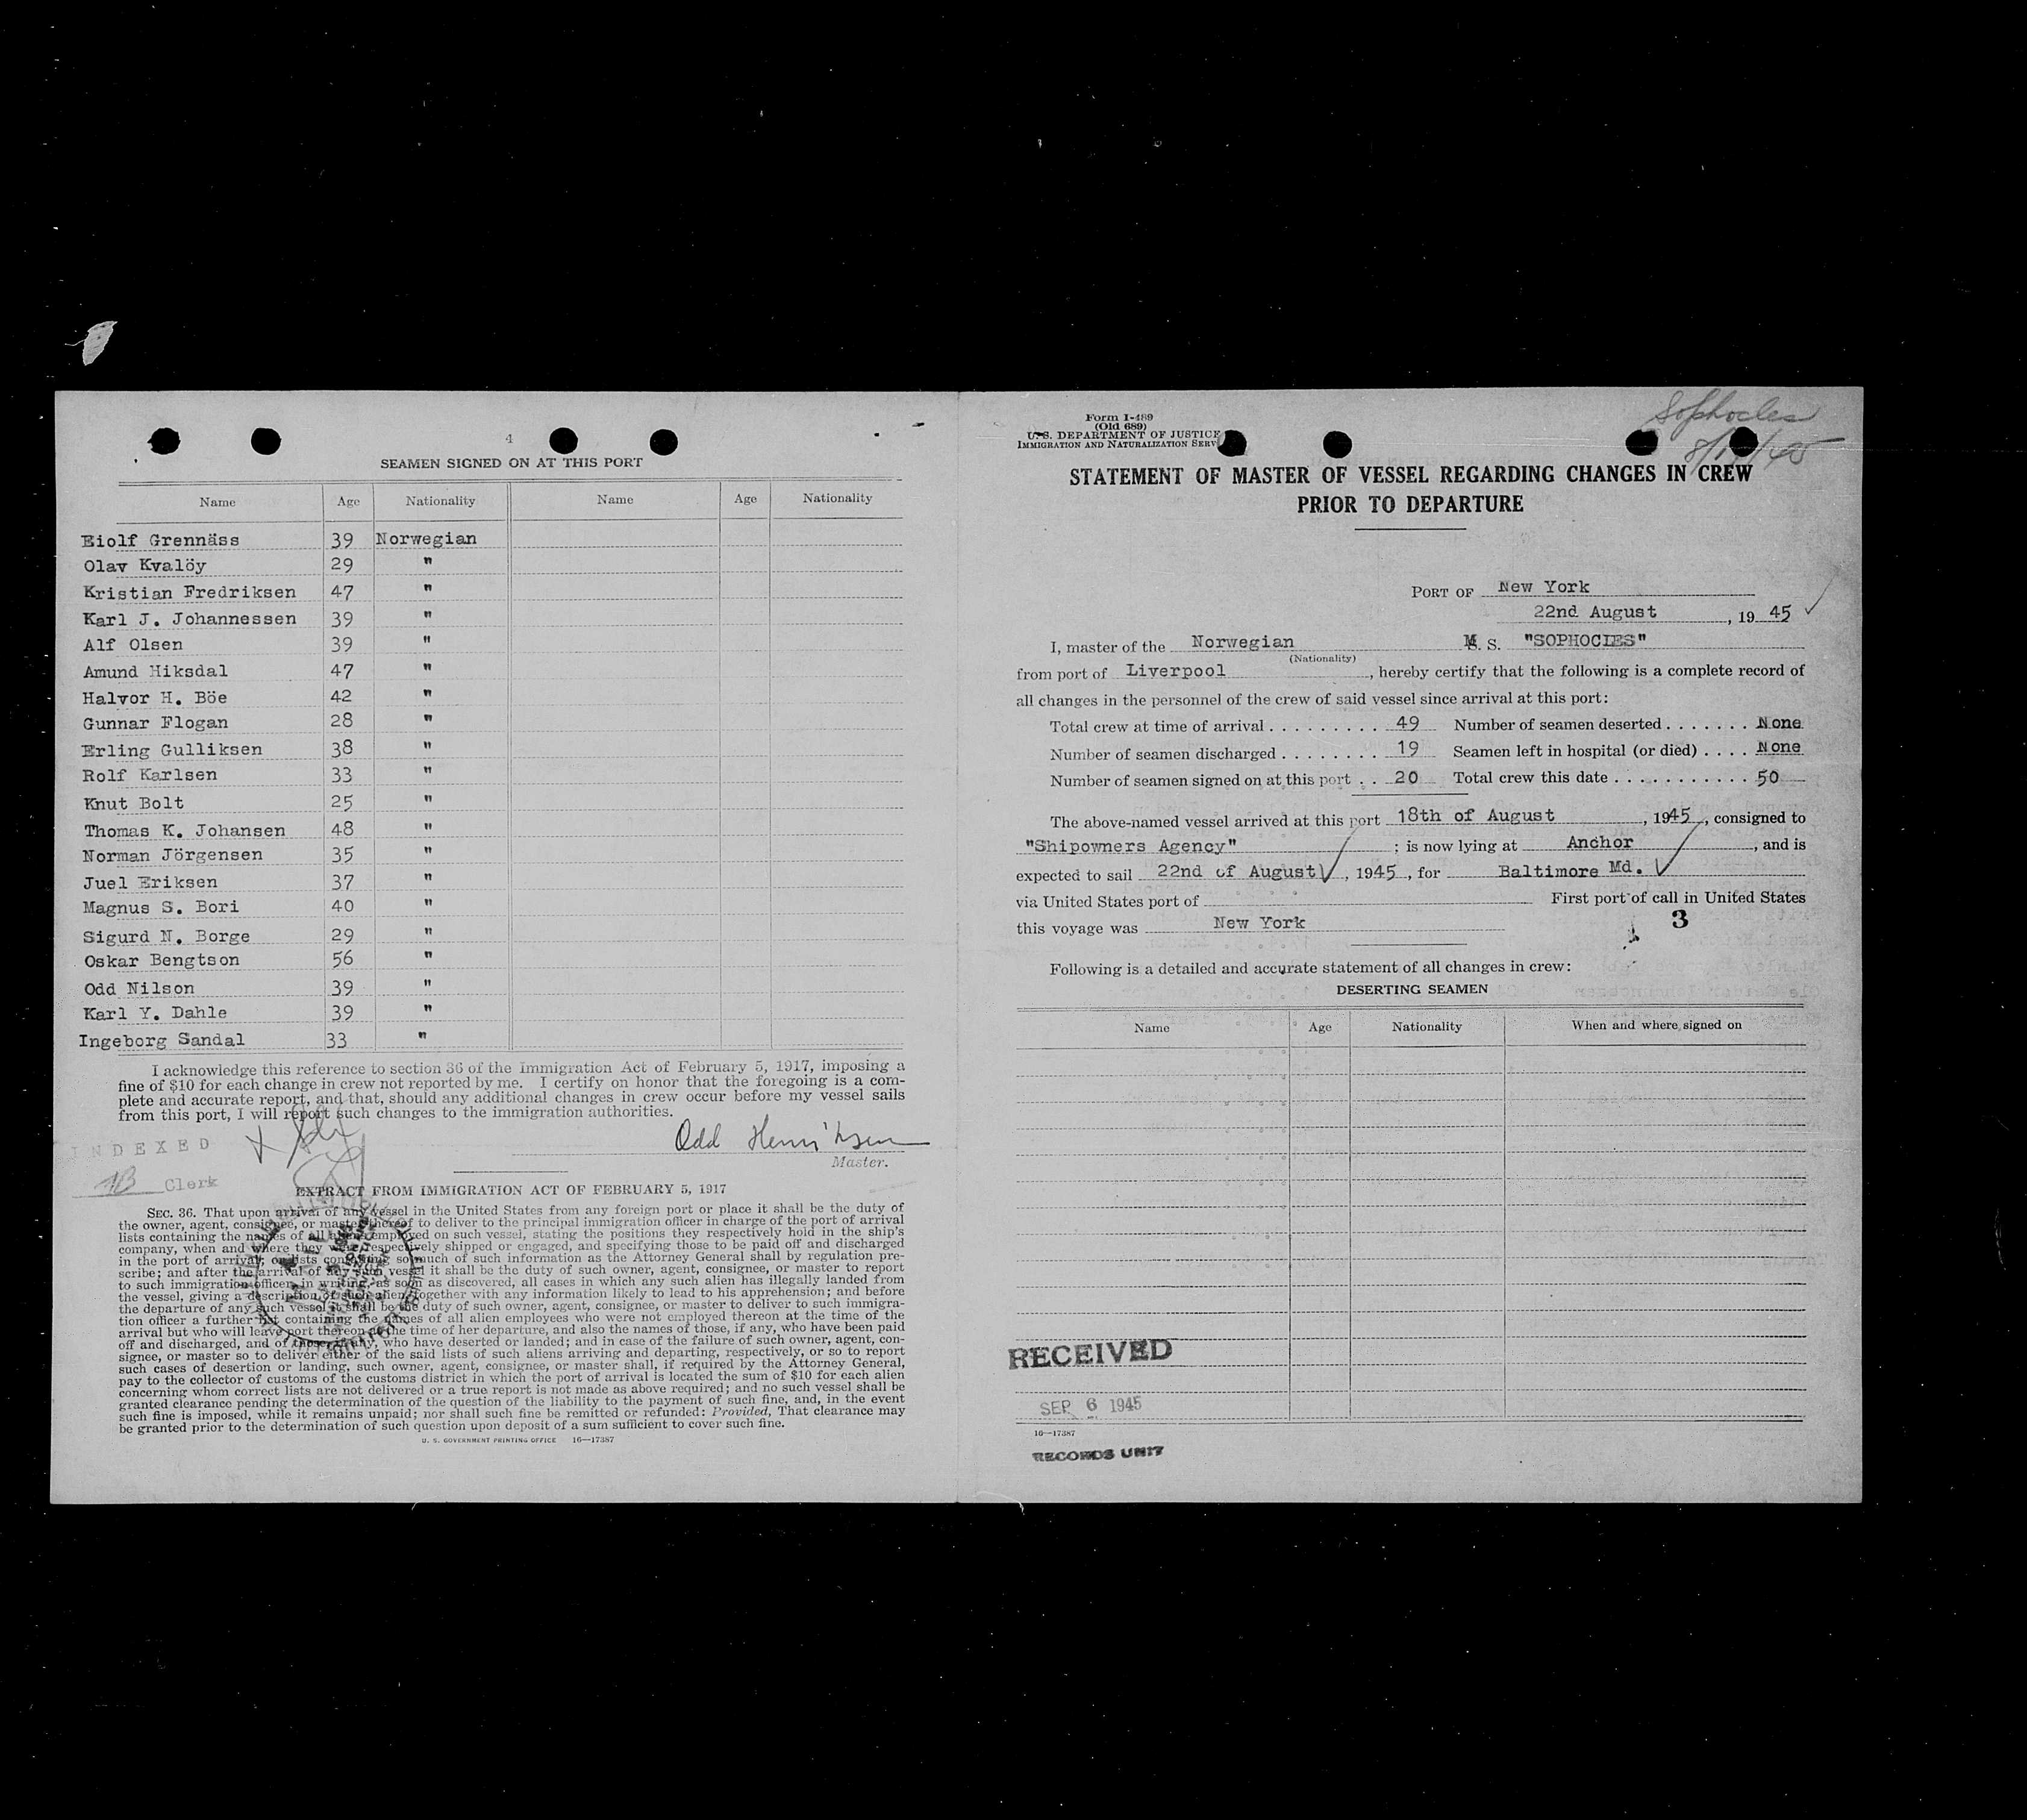 4
SEAMEN SIGNED ON AT THIS PORT
Name Age Nationality Name Age Nationality
Eiolf Grennäss 39 Norwegian
Olav Kvalöy 29 "
Kristian Fredriksen 47 "
Karl J. Johannessen 39 "
Alf Olsen 39 "
Amund Hiksdal 47 "
Halvor H. Böe 42 "
Gunnar Flogan 28 "
Erling Gulliksen 38 "
Rolf Karlsen 33 "
Knut Bolt 25 "
Thomas K. Johansen 48 "
Norman Jörgensen 35 "
Juel Eriksen 37 "
Magnus S. Bori 40 "
Sigurd N. Borge 29 "
Oskar Bengtson 56 "
Odd Nilson 39 "
Karl Y. Dahle 39 "
Ingeborg Sandal 33 "
I acknowledge this reference to section 36 of the Immigration Act of February 5, 1917, imposing a
fine of $10 for each change in crew not reported by me. I certify on honor that the foregoing is a com-
plete and accurate report, and that, should any additional changes in crew occur before my vessel sails
from this port, I will report such changes to the immigration authorities.
INDEXED
Odd Henriksen
Master.
Clerk
EXTRACT FROM IMMIGRATION ACT OF FEBRUARY 5, 1917
SEC. 36. That upon arrival of any vessel in the United States from any foreign port or place it shall be the duty of
the owner, agent, consignee, or master thereof to deliver to the principal immigration officer in charge of the port of arrival
lists containing the names of all aliens employed on such vessel, stating the positions they respectively hold in the ship's
company, when and where they were respectively shipped or engaged, and specifying those to be paid off and discharged
in the port of arrival; or lists containing so much of such information as the Attorney General shall by regulation pre-
scribe; and after the arrival of any such vessel it shall be the duty of such owner, agent, consignee, or master to report
to such immigration officer, in writing, as soon as discovered, all cases in which any such alien has illegally landed from
the vessel, giving a description of such alien, together with any information likely to lead to his apprehension; and before
the departure of any such vessel it shall be the duty of such owner, agent, consignee, or master to deliver to such immigra-
tion officer a further list containing the names of all alien employees who were not employed thereon at the time of the
arrival but who will leave port thereon at the time of her departure, and also the names of those, if any, who have been paid
off and discharged, and of those, if any, who have deserted or landed; and in case of the failure of such owner, agent, con-
signee, or master so to deliver either of the said lists of such aliens arriving and departing, respectively, or so to report
such cases of desertion or landing, such owner, agent, consignee, or master shall, if required by the Attorney General,
pay to the collector of customs of the customs district in which the port of arrival is located the sum of $10 for each alien
concerning whom correct lists are not delivered or a true report is not made as above required; and no such vessel shall be
granted clearance pending the determination of the question of the liability to the payment of such fine, and, in the event
such fine is imposed, while it remains unpaid; nor shall such fine be remitted or refunded: Provided, That clearance may
be granted prior to the determination of such question upon deposit of a sum sufficient to cover such fine.
U. S. GOVERNMENT PRINTING OFFICE 16—17387
Form I-489
(Old 689)
U. S. DEPARTMENT OF JUSTICE
IMMIGRATION AND NATURALIZATION SERV
Sophocles
STATEMENT OF MASTER OF VESSEL REGARDING CHANGES IN CREW
PRIOR TO DEPARTURE
PORT OF New York
22nd August, 1945
I, master of the Norwegian M. S. "SOPHOCIES"
(Nationality)
from port of Liverpool, hereby certify that the following is a complete record of
all changes in the personnel of the crew of said vessel since arrival at this port:
Total crew at time of arrival . . . . . . . . . 49 Number of seamen deserted . . . . . . . None
Number of seamen discharged . . . . . . . . 19 Seamen left in hospital (or died) . . . . None
Number of seamen signed on at this port . . 20 Total crew this date . . . . . . . . . . . 50
The above-named vessel arrived at this port 18th of August, 1945, consigned to
"Shipowners Agency"; is now lying at Anchor, and is
expected to sail 22nd of August, 1945, for Baltimore Md.
via United States port of First port of call in United States
this voyage was New York
3
Following is a detailed and accurate statement of all changes in crew:
DESERTING SEAMEN
Name Age Nationality When and where signed on
RECEIVED
SEP 6 1945
16—17387
RECORDS UNIT